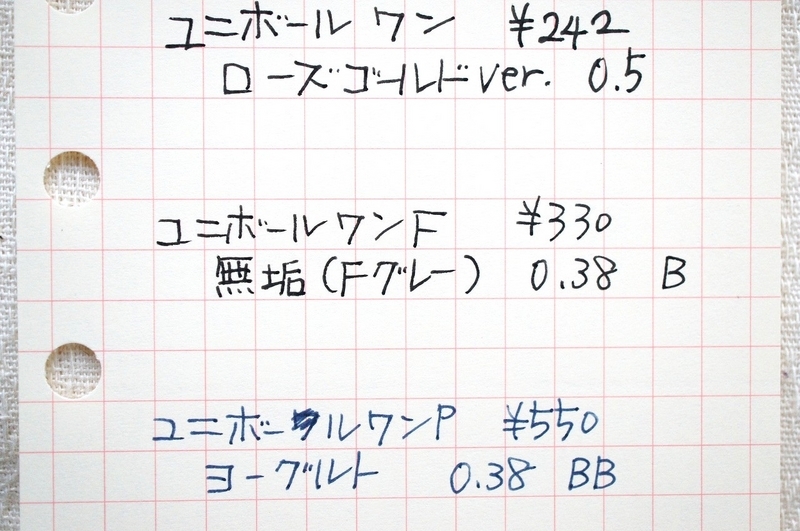 ユニボール ワン ¥242
ローズゴールドver. 0.5
ユニボールワンF ¥330
無垢(Fグレー) 0.38 B
ユニボールワンP ¥550
ヨーグルト 0.38 BB